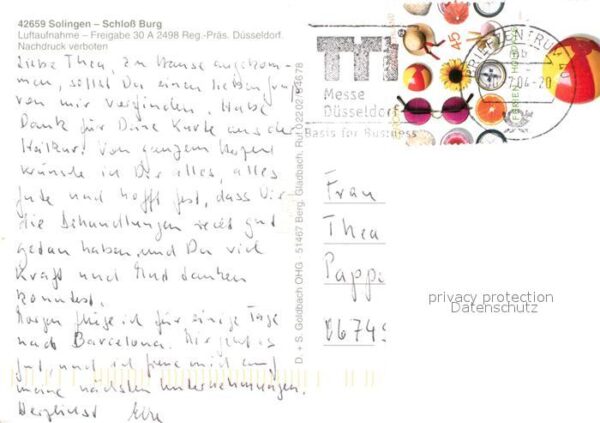 42659 Solingen – Schloß Burg
Luftaufnahme – Freigabe 30 A 2498 Reg.-Präs. Düsseldorf.
Nachdruck verboten
Liebe Thea, zu Hause angekom-
men, sollst Du einen lieben Gruß
von mir vorfinden. Habe
Dank für Deine Karte aus der
Von ganzem Herzen
wünsche ich Dir alles, alles
Gute und hoffe fest, dass Dir
die Behandlungen recht gut
getan haben und Du viel
Kraft und Mut tanken
konntest.
Morgen fliege ich für einige Tage
nach Barcelona. Mir geht es
gut, und ich freue mich auf
meine nächsten Unternehmungen.
Herzlichst
D. + S. Goldbach OHG · 51467 Berg. Gladbach. Ruf 02202/
Messe
Düsseldorf
Basis for Business
BRIEFZENTRUM
45
Frau
Thea
Pappe
0674
privacy protection
Datenschutz